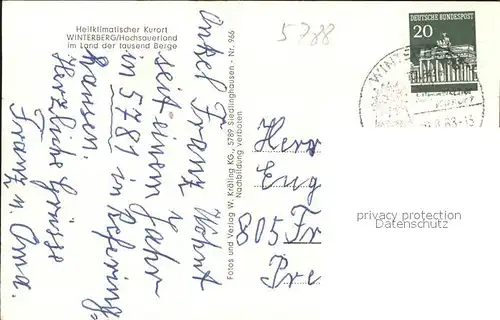 Heilklimatischer Kurort
WINTERBERG/Hochsauerland
im Land der tausend Berge
5788
Onkel Franz wohnt
seit einem Jahr
in 5781 in
hausen.
Herzliche Grüsse
Franz u. Oma.
Fotos und Verlag W. Kräling KG., 5789 Siedlinghausen - Nr. 966
Nachbildung verboten
DEUTSCHE BUNDESPOST
20
WINT
Herr
Eug
805 Fr
Pre
privacy protection
Datenschutz